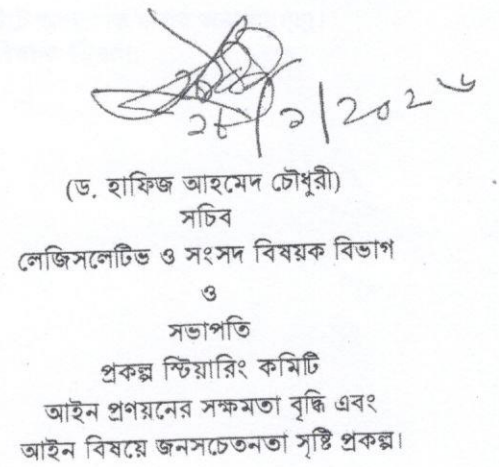 (ড. হাফিজ আহমেদ চৌধুরী)
সচিব
লেজিসলেটিভ ও সংসদ বিষয়ক বিভাগ
ও
সভাপতি
প্রকল্প স্টিয়ারিং কমিটি
আইন প্রণয়নের সক্ষমতা বৃদ্ধি এবং
আইন বিষয়ে জনসচেতনতা সৃষ্টি প্রকল্প।